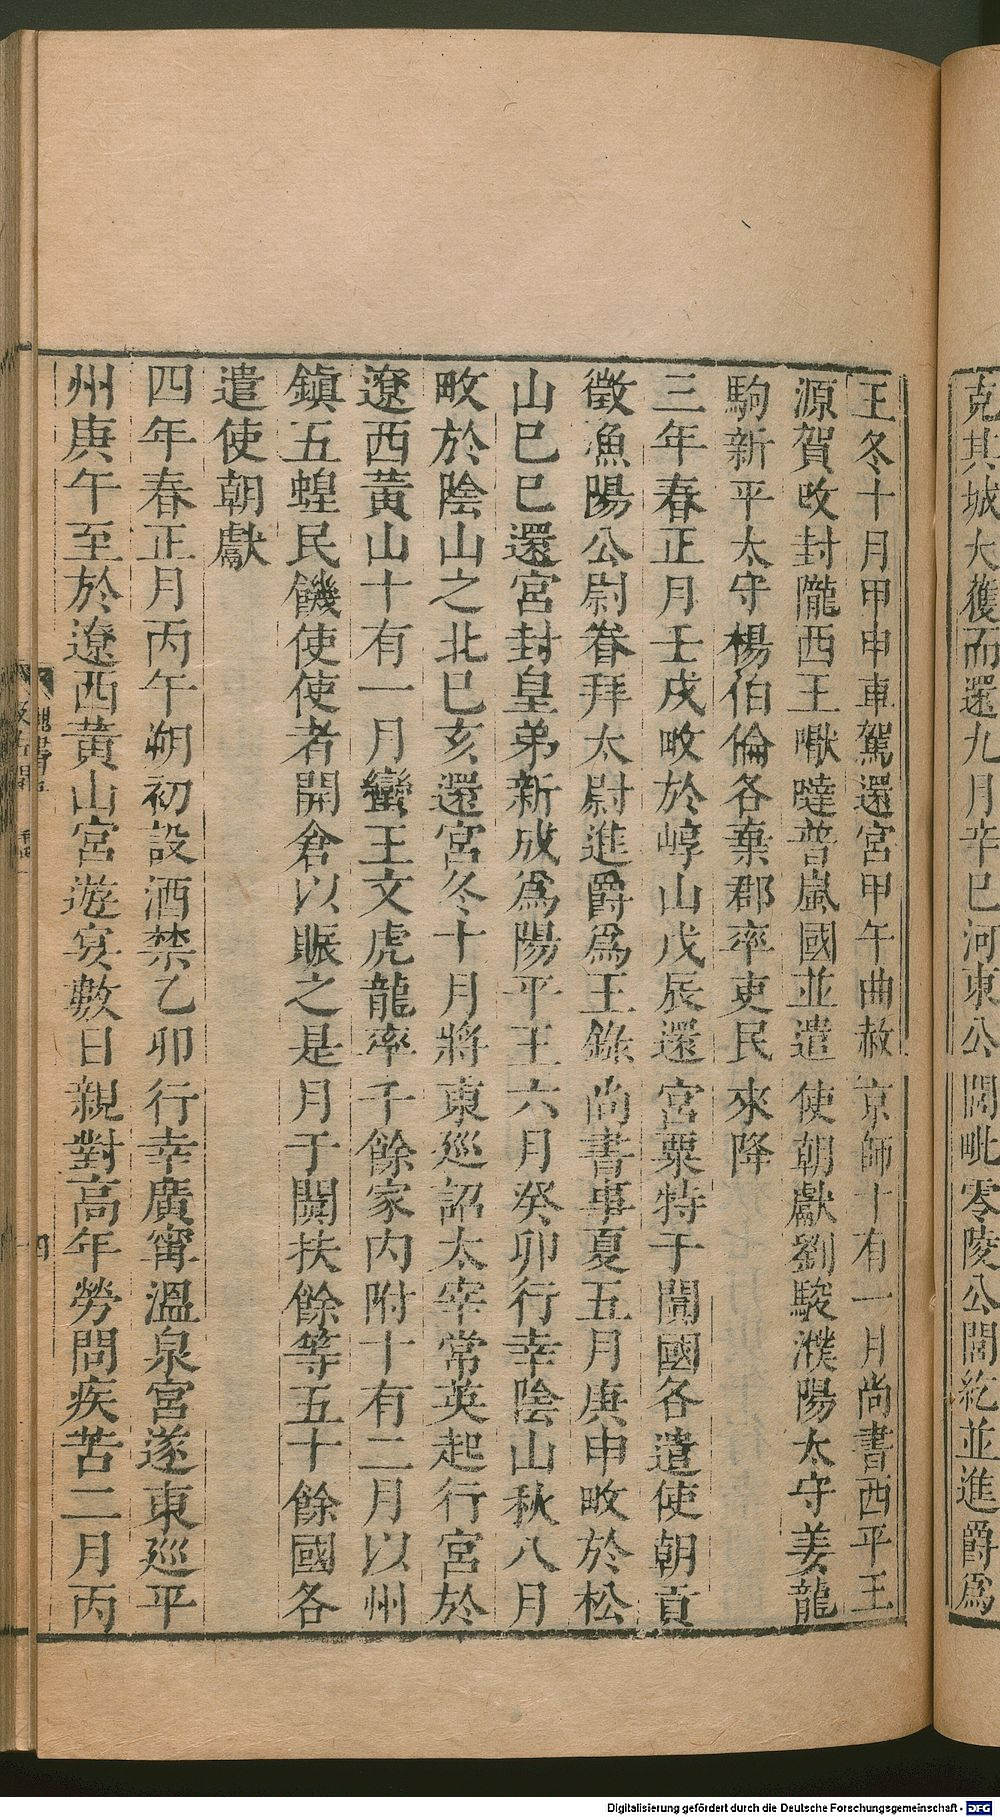 克其城大獲而還九月辛巳河東公閭毗零陵公閭紇並進爵爲
王冬十月甲申車駕還宮甲午曲赦京師十有一月尚書西平王
源賀改封隴西王嚈噠普嵐國並遣使朝獻劉駿濮陽太守姜龍
駒新平太守楊伯倫各棄郡率吏民來降
三年春正月壬戌畋於崞山戊辰還宮粟特于闐國各遣使朝貢
徵漁陽公尉眷拜太尉進爵爲王錄尚書事夏五月庚申畋於松
山巳巳還宮封皇弟新成爲陽平王六月癸卯行幸陰山秋八月
畋於陰山之北巳亥還宮冬十月將東巡詔太宰常英起行宮於
遼西黃山十有一月蠻王文虎龍率千餘家內附十有二月以州
鎮五蝗民饑使使者開倉以賑之是月于闐扶餘等五十餘國各
遣使朝獻
四年春正月丙午朔初設酒禁乙卯行幸廣甯溫泉宮遂東巡平
州庚午至於遼西黃山宮遊宴數日親對高年勞問疾苦二月丙
魏書五
四
Digitalisierung gefördert durch die Deutsche Forschungsgemeinschaft - DFG